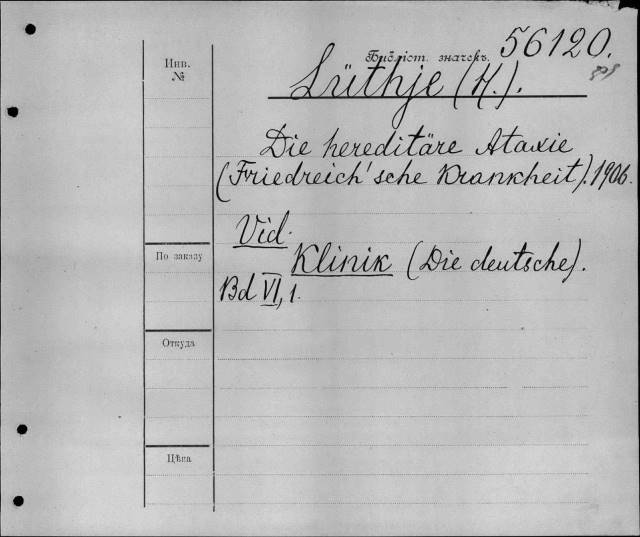 56120.
Библіот. значекъ.
Инв.
№
Lüthje (H.).
Die hereditäre Ataxie
(Friedreich'sche Krankheit). 1906.
Vid.
По заказу
Klinik (Die deutsche).
Bd VI, 1.
Откуда
Цѣна